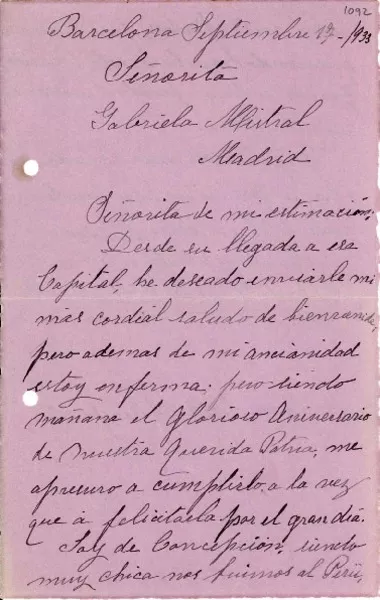 1092
Barcelona Septiembre 17-/933
Señorita
Gabriela Mistral
Madrid
Señorita de mi estimación,
Desde su llegada a esa
Capital, he deseado enviarle mi
mas cordial saludo de bienvenida,
pero ademas de mi ancianidad
estoy enferma. pero siendo
mañana el Glorioso Aniversario
de nuestra Querida Patria, me
apresuro a cumplirlo, a la vez
que a felicitarla por el gran día.
Soy de Concepción, siendo
muy chica nos fuimos al Perú,